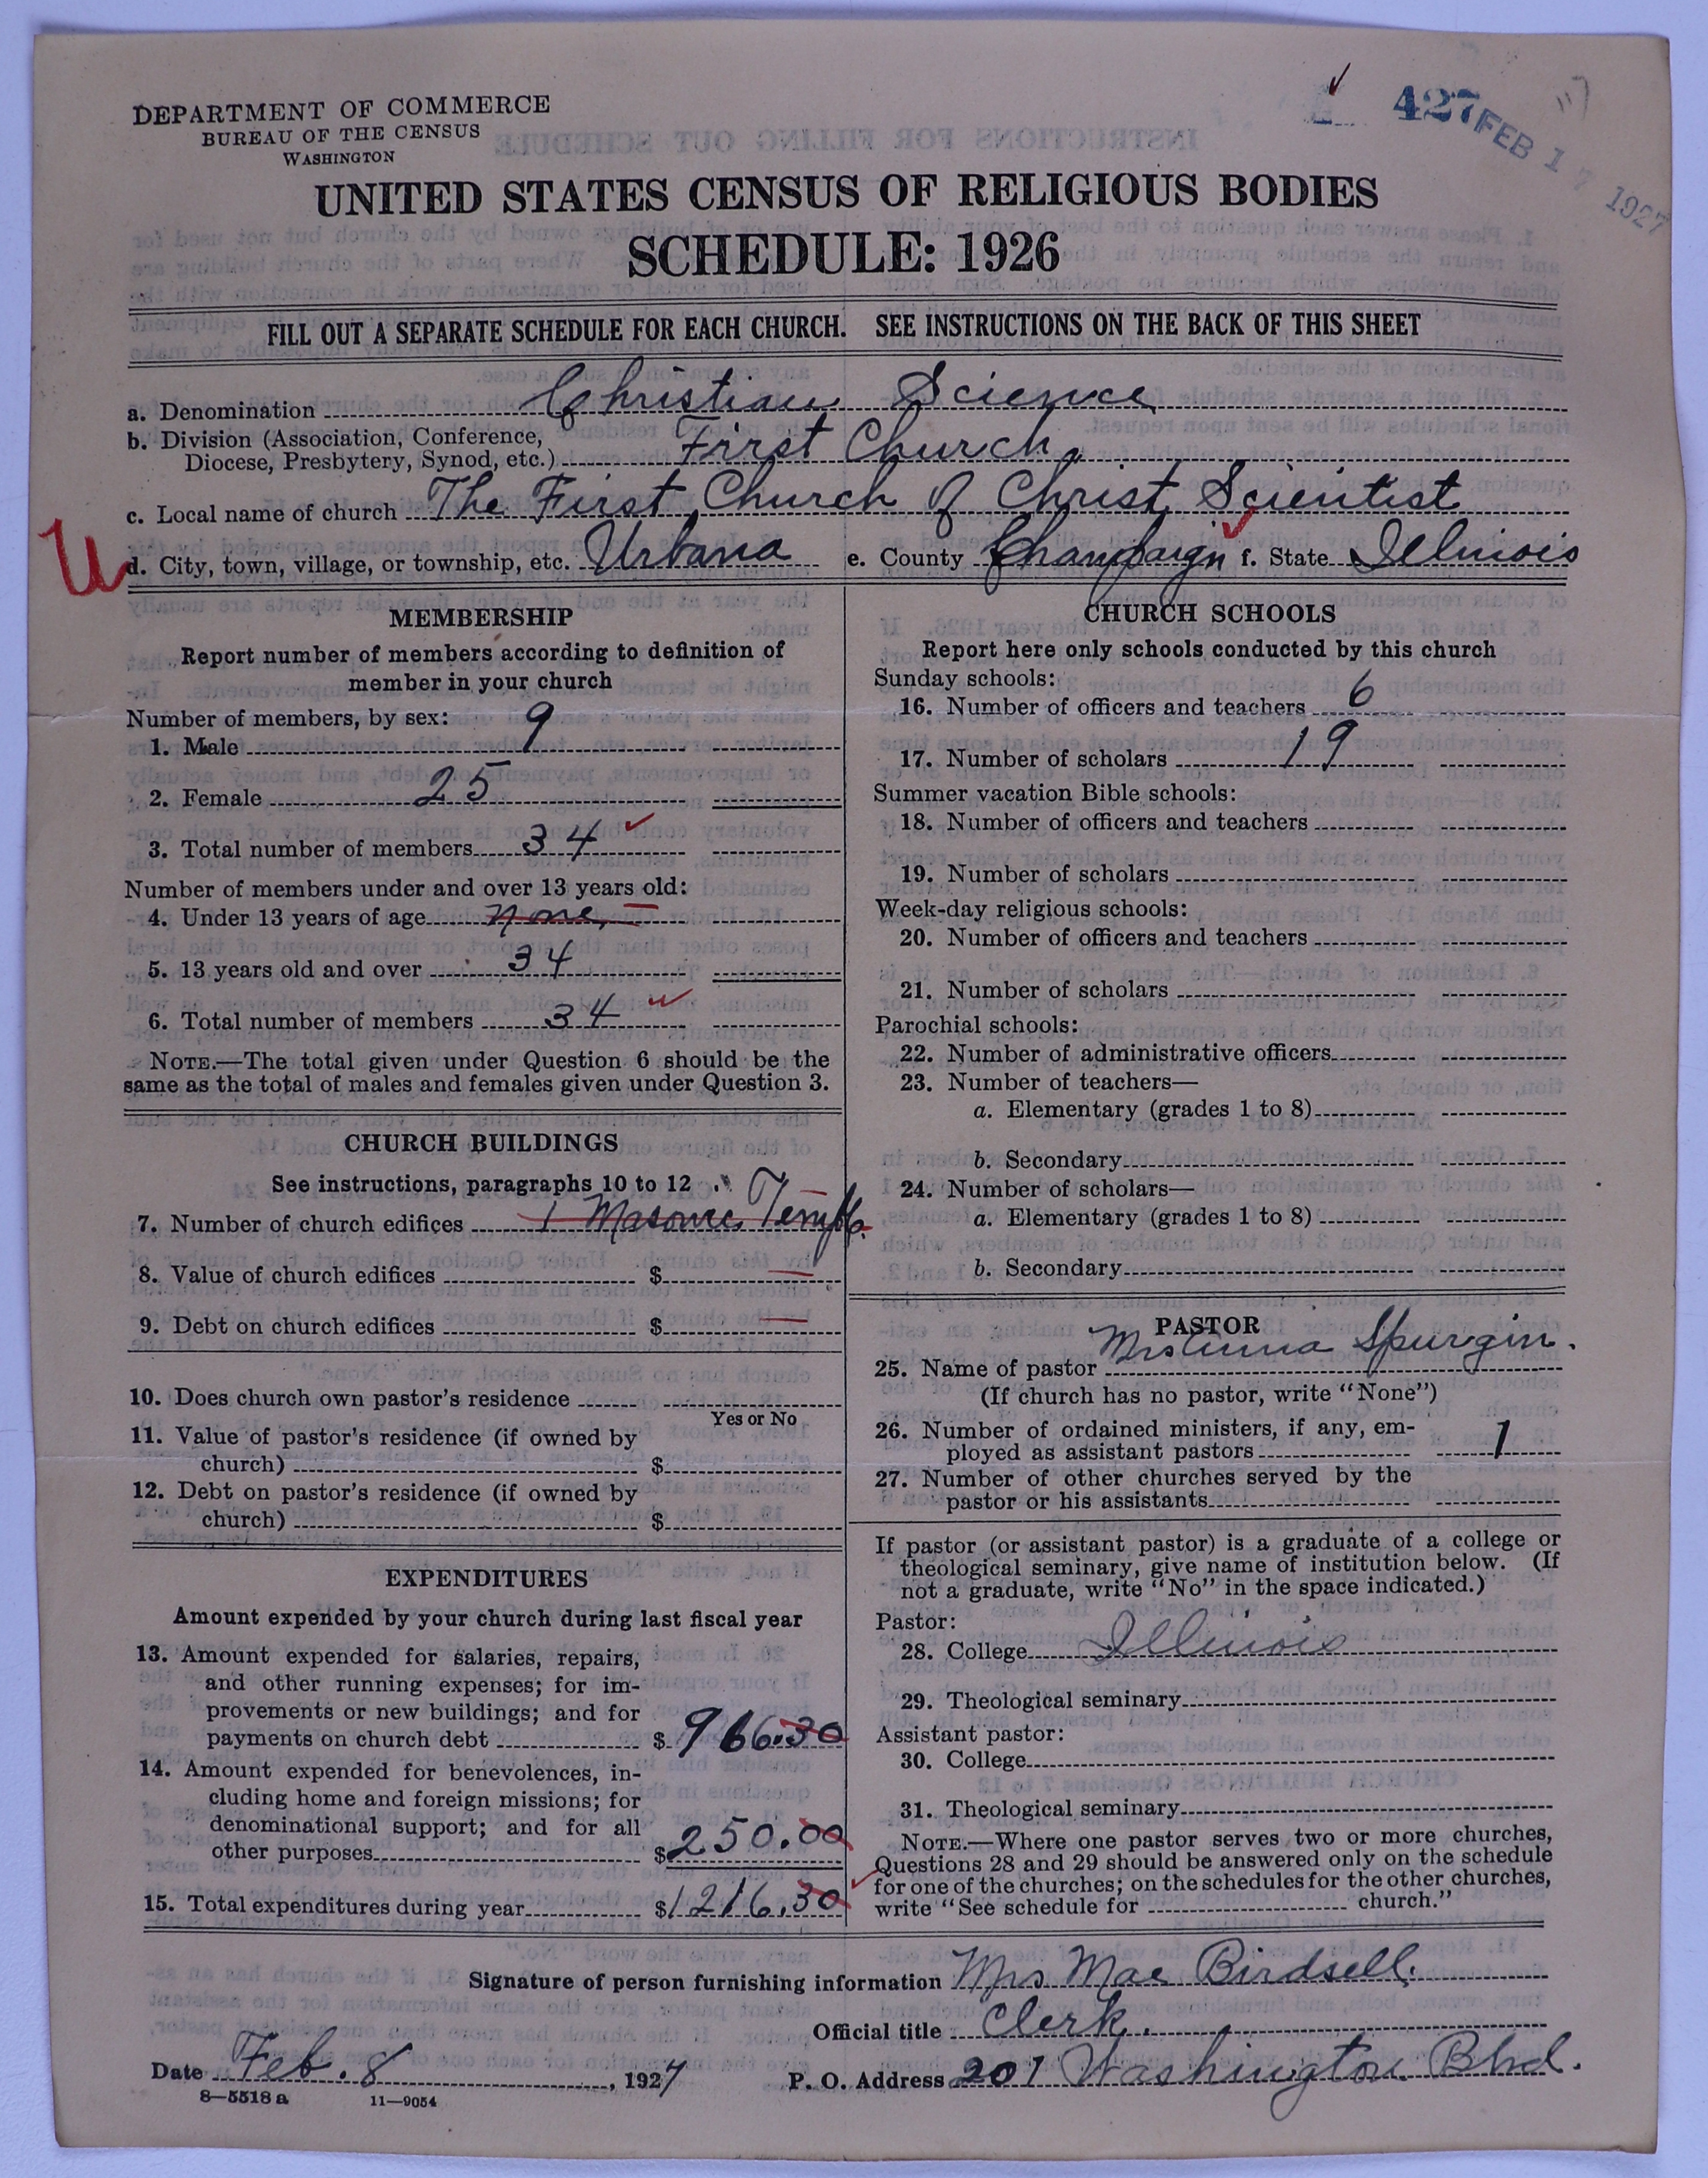 427 FEB 17 1927
DEPARTMENT OF COMMERCE
BUREAU OF THE CENSUS
WASHINGTON
UNITED STATES CENSUS OF RELIGIOUS BODIES
SCHEDULE: 1926
FILL OUT A SEPARATE SCHEDULE FOR EACH CHURCH. SEE INSTRUCTIONS ON THE BACK OF THIS SHEET
a. Denomination Christian Science
b. Division (Association, Conference,
Diocese, Presbytery, Synod, etc.) First Church.
c. Local name of church The First Church of Christ, Scientist
U
d. City, town, village, or township, etc. Urbana e. County Champaign f. State Illinois
MEMBERSHIP
Report number of members according to definition of
member in your church
Number of members, by sex:
1. Male 9
2. Female 25
3. Total number of members 34
Number of members under and over 13 years old:
4. Under 13 years of age none
5. 13 years old and over 34
6. Total number of members 34
NOTE.—The total given under Question 6 should be the
same as the total of males and females given under Question 3.
CHURCH BUILDINGS
See instructions, paragraphs 10 to 12
7. Number of church edifices 1 Masonic Temple.
8. Value of church edifices $
9. Debt on church edifices $
10. Does church own pastor's residence
Yes or No
11. Value of pastor's residence (if owned by
church) $
12. Debt on pastor's residence (if owned by
church) $
EXPENDITURES
Amount expended by your church during last fiscal year
13. Amount expended for salaries, repairs,
and other running expenses; for im-
provements or new buildings; and for
payments on church debt $ 966.30
14. Amount expended for benevolences, in-
cluding home and foreign missions; for
denominational support; and for all
other purposes $ 250.00
15. Total expenditures during year $ 1216.30
CHURCH SCHOOLS
Report here only schools conducted by this church
Sunday schools:
16. Number of officers and teachers 6
17. Number of scholars 19
Summer vacation Bible schools:
18. Number of officers and teachers
19. Number of scholars
Week-day religious schools:
20. Number of officers and teachers
21. Number of scholars
Parochial schools:
22. Number of administrative officers
23. Number of teachers—
a. Elementary (grades 1 to 8)
b. Secondary
24. Number of scholars—
a. Elementary (grades 1 to 8)
b. Secondary
PASTOR
25. Name of pastor Mrs Anna Spurgin.
(If church has no pastor, write "None")
26. Number of ordained ministers, if any, em-
ployed as assistant pastors 1
27. Number of other churches served by the
pastor or his assistants
If pastor (or assistant pastor) is a graduate of a college or
theological seminary, give name of institution below. (If
not a graduate, write "No" in the space indicated.)
Pastor:
28. College Illinois
29. Theological seminary
Assistant pastor:
30. College
31. Theological seminary
NOTE.—Where one pastor serves two or more churches,
Questions 28 and 29 should be answered only on the schedule
for one of the churches; on the schedules for the other churches,
write "See schedule for church."
Signature of person furnishing information Mrs Mae Birdsell.
Official title Clerk.
Date Feb. 8, 1927 P. O. Address 201 Washington Blvd.
8—5518 a 11—9054